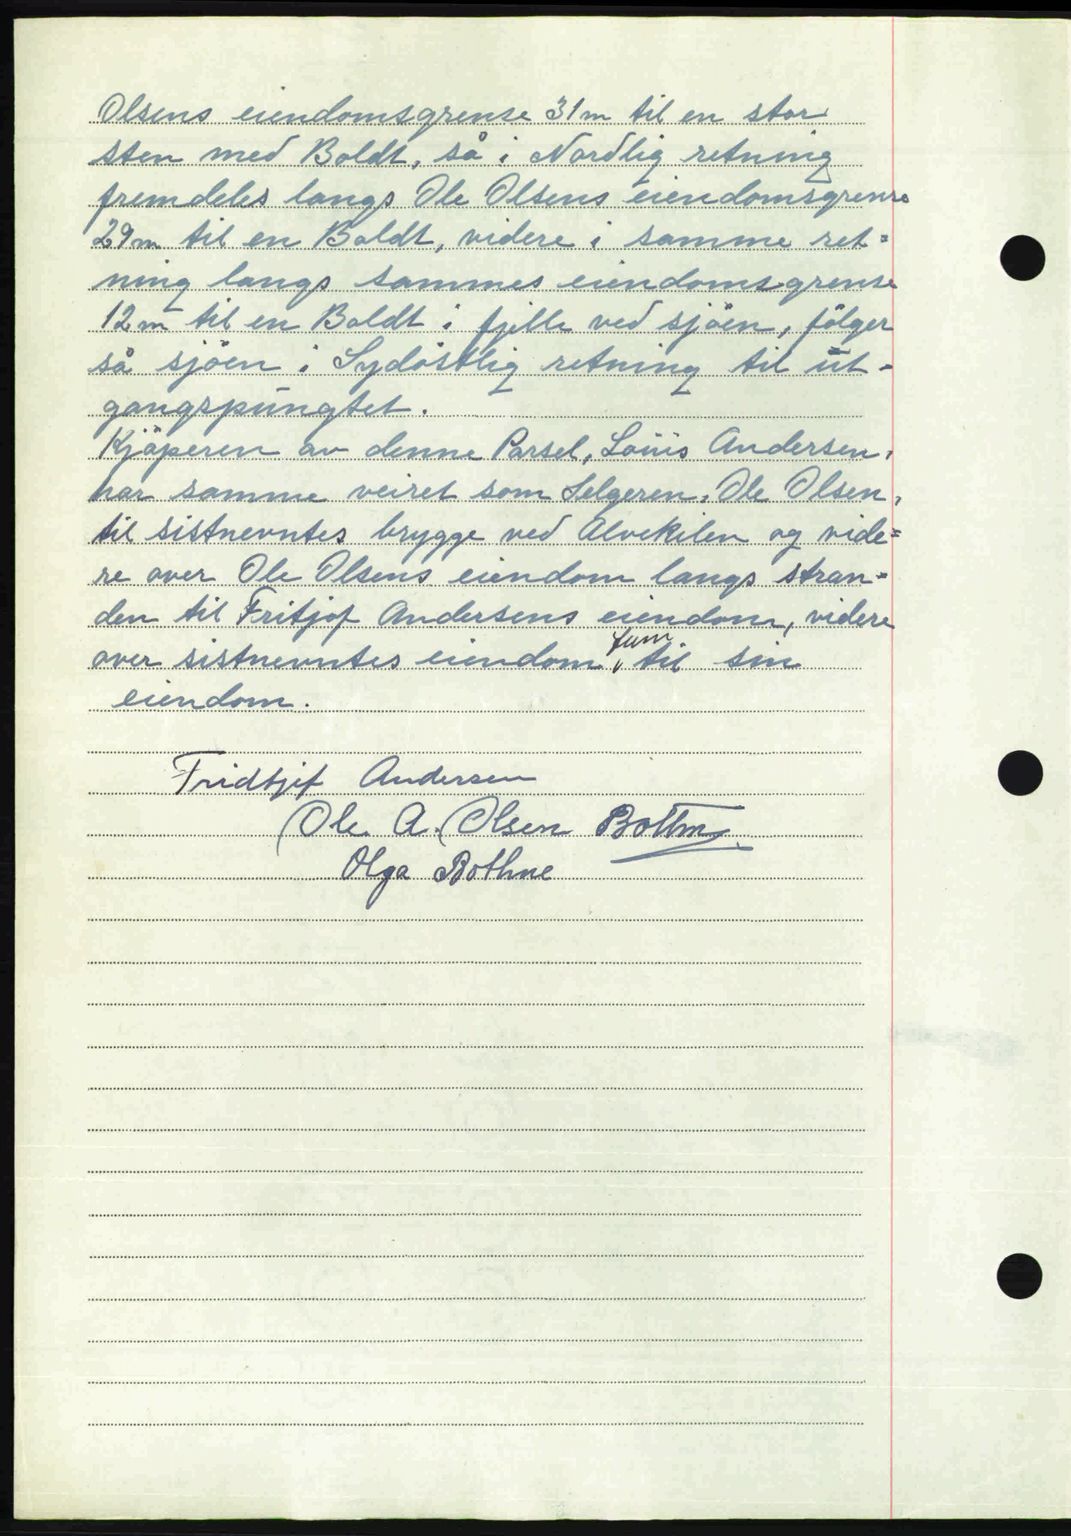 Olsens eiendomsgrense 31m til en stor
sten med Boldt, så i Nordlig retning
fremdeles langs Ole Olsens eiendomsgrense
29m til en Boldt, videre i samme ret=
ning langs sammes eiendomsgrense
12m til en Boldt i fjelle ved sjöen, fölger
så sjöen i Sydöstlig retning til ut-
gangspungtet.
Kjöperen av denne Parsel, Louis Andersen,
har samme veiret som Selgeren, Ole Olsen,
til sistnevntes brygge ved Alvekilen og vide=
re over Ole Olsens eiendom langs stran=
den til Fritjof Andersens eiendom, videre
over sistnevntes eiendom fram til sin
eiendom.
Fridtjif Andersen
Ole A. Olsen Bothne
Olga Bothne